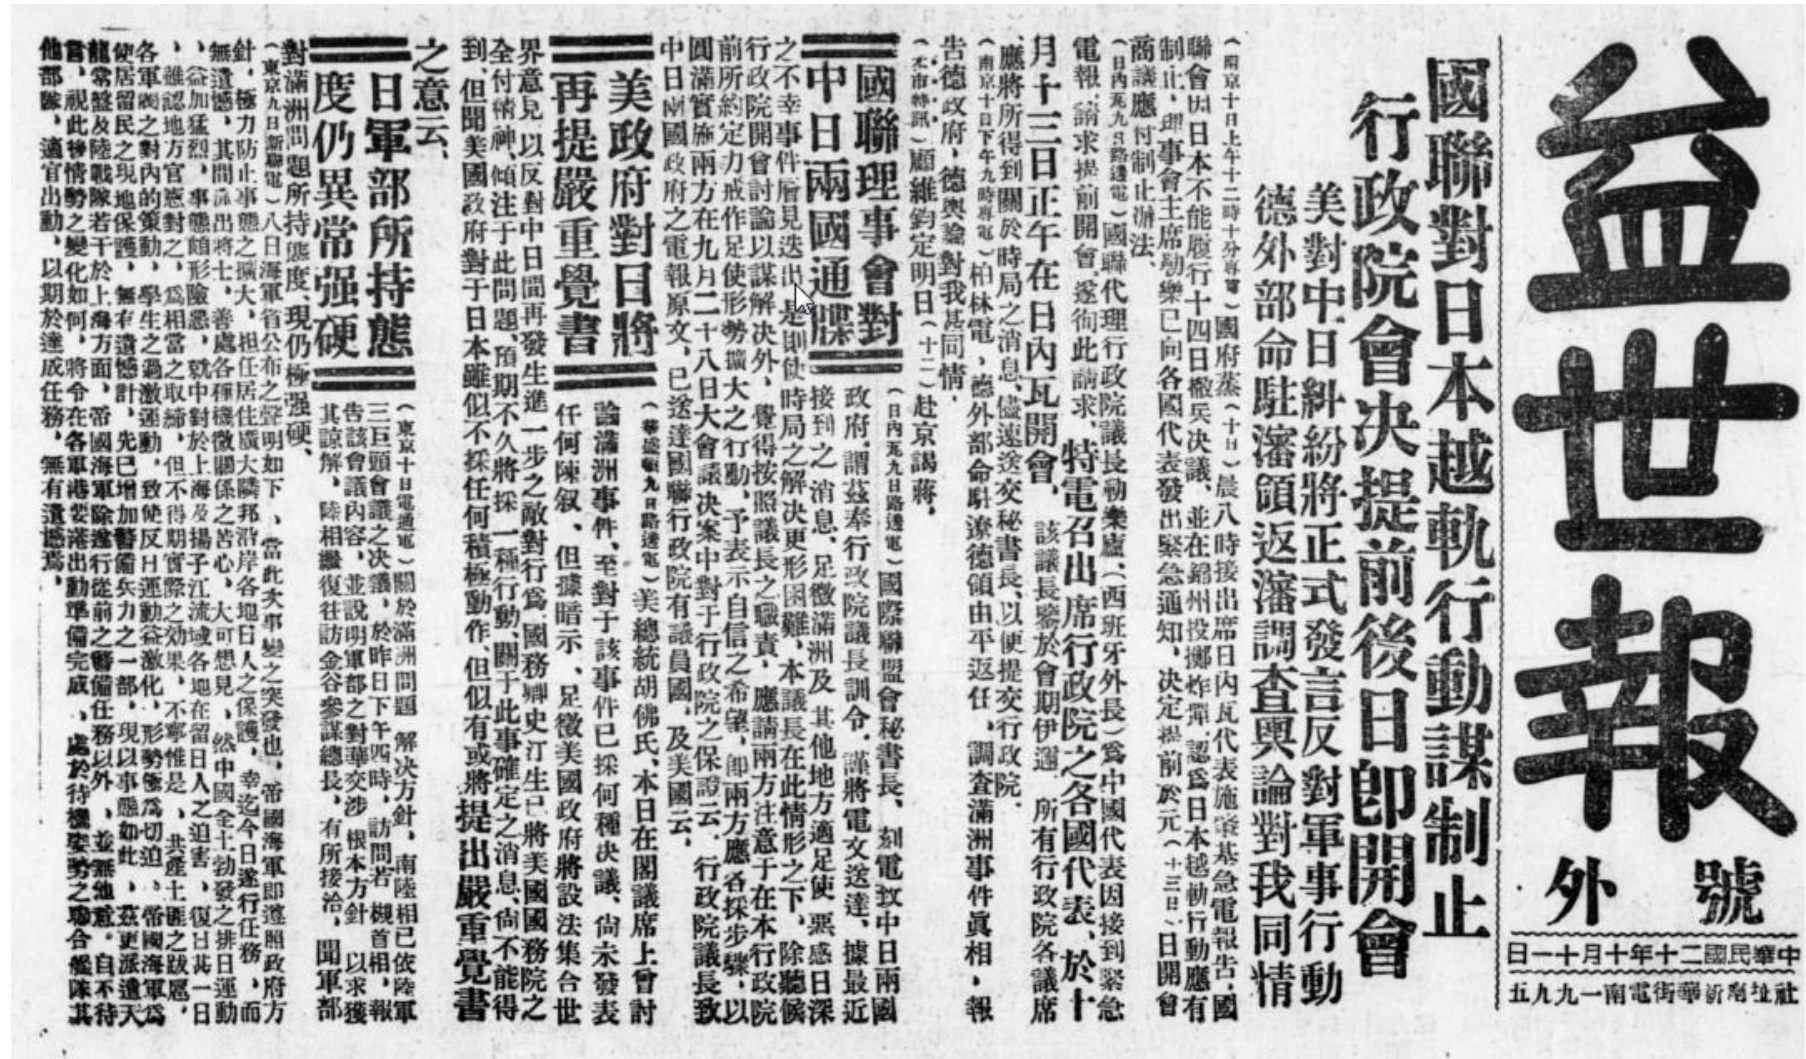 益世報
號外
中華民國二十年十月十一日
社址南新華街電南一九九五
國聯對日本越軌行動謀制止
行政院會決提前後日卽開會
美對中日糾紛將正式發言反對軍事行動
德外部命駐瀋領返瀋調查輿論對我同情
(南京十日上午十二時十分專電)國府蔣(十日)晨八時接出席日內瓦代表施肇基急電報告、國
聯會因日本不能履行十四日撤兵决議、並在錦州投擲炸彈、認爲日本越軌行動應有
制止、理事會主席勒樂已向各國代表發出緊急通知、决定提前於元(十三日)日開會
商議應付制止辦法、
(日內瓦九日路透電)國聯代理行政院議長勒樂廬、(西班牙外長)爲中國代表因接到緊急
電報、請求提前開會、遂徇此請求、特電召出席行政院之各國代表、於十
月十三日正午在日內瓦開會、該議長鑒於會期伊邇、所有行政院各議席
應將所得到關於時局之消息、儘速送交秘書長、以便提交行政院、
(南京十日下午九時專電)柏林電、德外部命駐遼德領由平返任、調查滿洲事件眞相、報
告德政府、德輿論對我甚同情、
(本市特訊)顧維鈞定明日(十二)赴京謁蔣、
國聯理事會對
中日兩國通牒
(日內瓦九日路透電)國際聯盟會秘書長、刻電致中日兩國
政府、謂茲奉行政院議長訓令、謹將電文送達、據最近
接到之消息、足徵滿洲及其他地方適足使惡感日深
之不幸事件層見迭出、是則使時局之解决更形困難、本議長在此情形之下、除聽候
行政院開會討論以謀解决外、覺得按照議長之職責、應請兩方注意于在本行政院
前所約定力戒作足使形勢擴大之行動、予表示自信之希望、卽兩方應各採步驟、以
圓滿實施兩方在九月二十八日大會議决案中對于行政院之保證云、行政院議長致
中日兩國政府之電報原文、已送達國聯行政院有議員國、及美國云、
美政府對日將
再提嚴重覺書
(華盛頓九日路透電)美總統胡佛氏、本日在閣議席上曾討
論滿洲事件、至對于該事件已採何種决議、尙未發表
任何陳叙、但據暗示、足徵美國政府將設法集合世
界意見、以反對中日間再發生進一步之敵對行爲、國務卿史汀生已將美國國務院之
全付精神、傾注于此問題、預期不久將採一種行動、關于此事確定之消息、尙不能得
到、但聞美國政府對于日本雖似不採任何積極動作、但似有或將提出嚴重覺書
之意云、
日軍部所持態
度仍異常强硬
(東京十日電通電)關於滿洲問題解决方針、南陸相已依陸軍
三巨頭會議之决議、於昨日下午四時、訪問若槻首相、報
告該會議內容、並說明軍部之對華交涉根本方針、以求獲
其諒解、陸相繼復往訪金谷參謀總長、有所接洽、聞軍部
對滿洲問題所持態度、現仍極强硬、
(東京九日新聯電)八日海軍省公布之聲明如下、當此次事變之突發也、帝國海軍即遵照政府方
針、極力防止事態之擴大、担任居住廣大隣邦沿岸各地日人之保護、幸迄今日遂行任務、而
無遺憾、其間派出將士、善處各種機微關係之苦心、大可想見、然中國全土勃發之排日運動
、益加猛烈、事態頗形險惡、就中對於上海及揚子江流域各地在留日人之迫害、復日甚一日
、雖認地方官憲對之、爲相當之取締、但不得期實際之効果、不寧惟是、共產土匪之跋扈、
各軍閥之對內的策動、學生之過激運動、致使反日運動益激化、形勢極爲切迫、帝國海軍爲
使居留民之現地保護、無有遺憾計、先已增加警備兵力之一部、現以事態如此、茲更派遣天
龍常盤及陸戰隊若干於上海方面、帝國海軍除遂行從前之警備任務以外、並無他意、自不待
言、視此後情勢之變化如何、將令在各軍港要港出動準備完成、處於待機姿勢之聯合艦隊其
他部隊、適宜出動、以期於達成任務、無有遺憾焉、